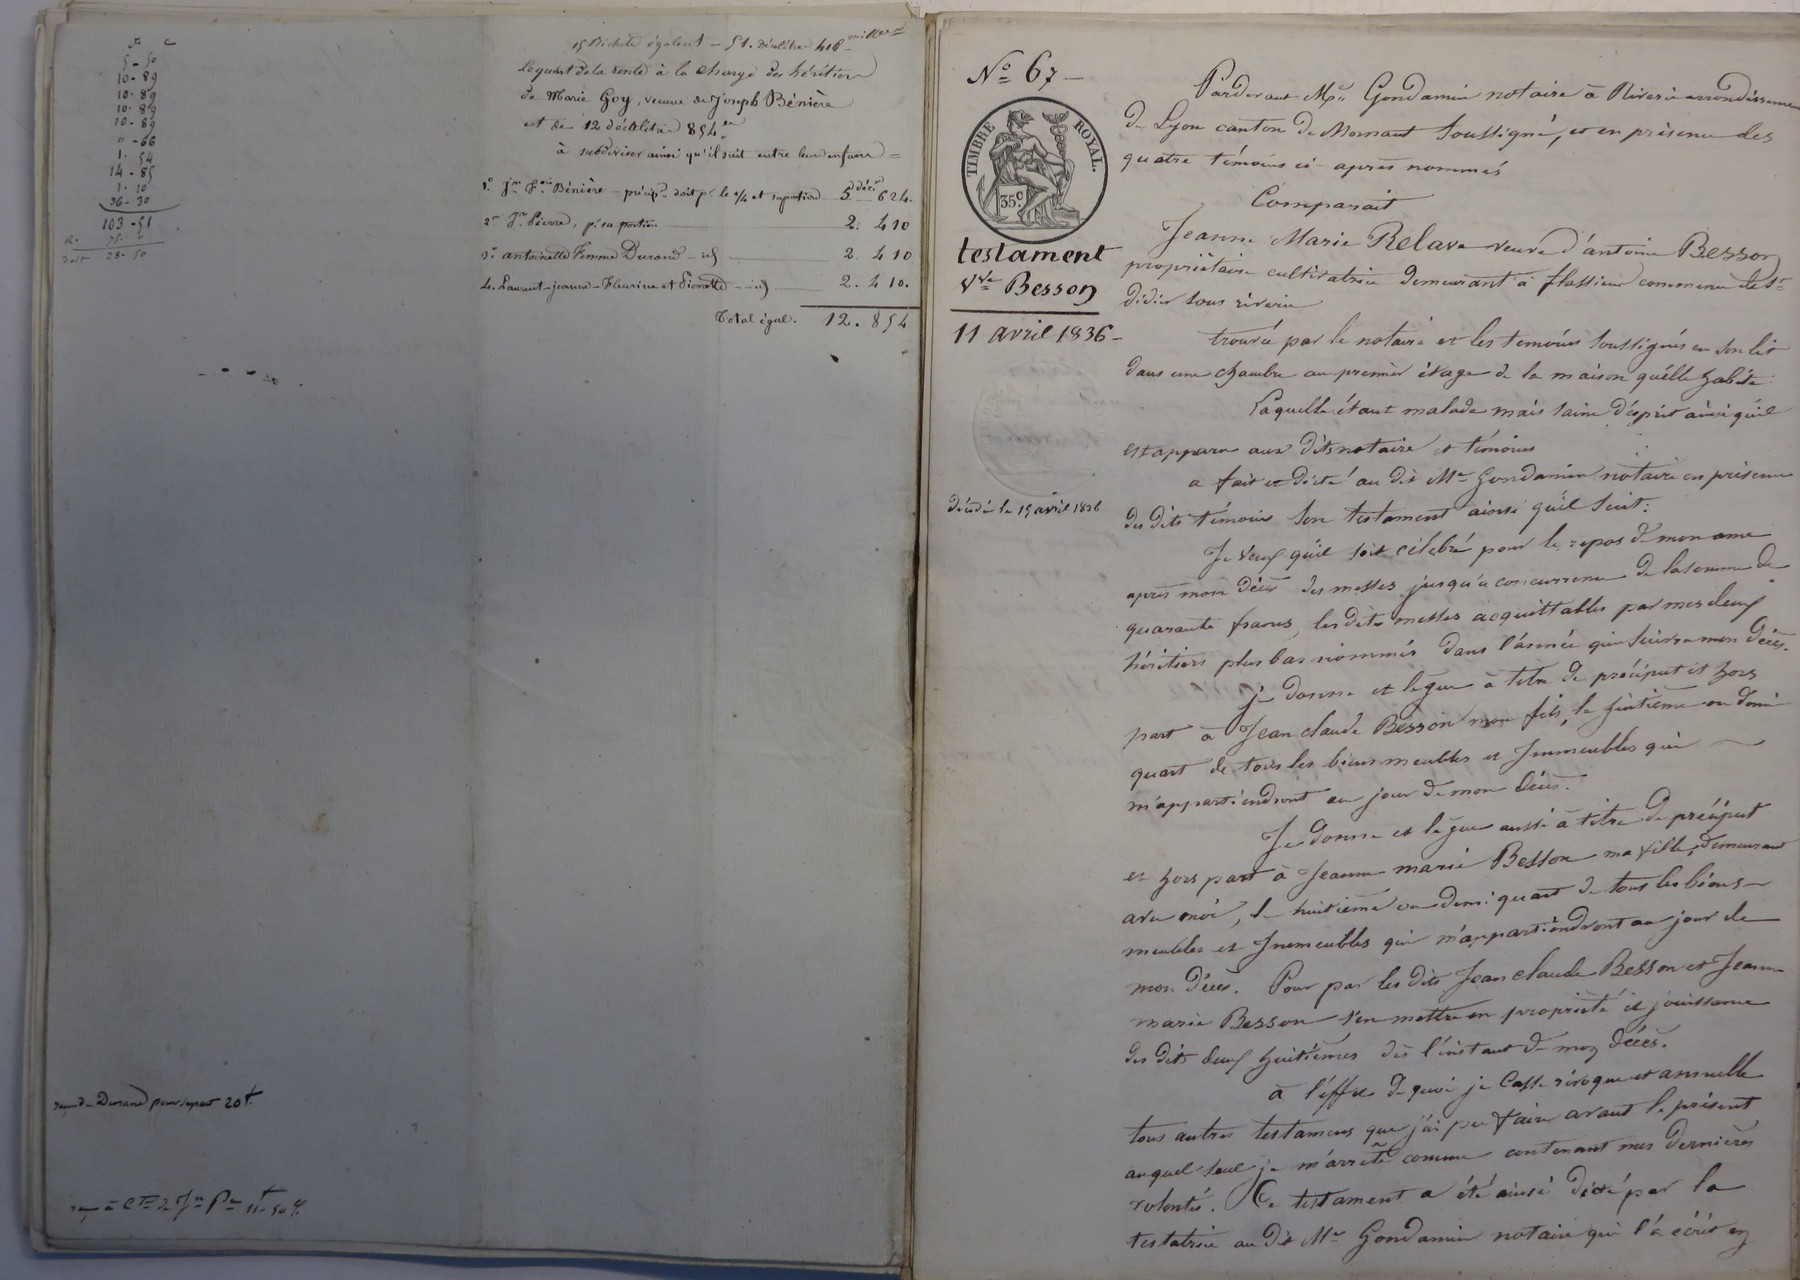 fr c
5 - 50
10 - 89
10 - 89
10 - 89
10 - 89
" - 66
1 - 54
14 - 85
1 - 10
36 - 30
103 - 51
75 -
doit 28 - 50
15 Bichets égalent - 51. Décalitres 416
Le quart de la rente à la charge des héritiers
de Marie Goy, veuve de Joseph Bénière
est de 12 décalitres 854
à subdiviser ainsi qu'il suit entre leurs enfans =
1° Jn Fois Bénière - précip. doit pr le 1/4 et sa portion 5 décal 624.
2° Jn Pierre, pr sa portion 2. 410
3° antoinette femme Durand - id 2. 410
4. Laurent - jeanne - Fleurine et Pierrette - id 2. 410.
Total égal. 12. 854
reçu de Durand pour sa part 20 f.
reçu à Cte de Jn Pre 11 f 50 c.
N° 67 -
TIMBRE ROYAL.
35 c.
testament
Vve Besson
11 avril 1836 -
décédé le 15 avril 1836
Pardevant Me Gondamin notaire à Riverie arrondissement
de Lyon canton de Mornant soussigné, et en présence des
quatre témoins ci-après nommés
Comparait
Jeanne Marie Relave veuve d'antoine Besson
propriétaire cultivatrice demeurant à flassieux commune de St
didier sous riverie
trouvée par le notaire et les temoins soussignés en son lit
dans une chambre au premier étage de la maison qu'elle habite
Laquelle étant malade mais saine d'ésprit ainsi qu'il
est apparu aux dits notaire et témoins
a fait et dicté au dit Me Gondamin notaire en présence
des dits témoins son testament ainsi qu'il suit:
Je veux qu'il soit célébré pour le repos de mon ame
après mon décès des messes jusqu'a concurrence de la somme de
quarante francs, les dites messes acquittables par mes deux
héritiers plus bas nommés dans l'année qui suivra mon décès.
je donne et lègue à titre de préciput et hors
part à Jean claude Besson mon fils, le huitième ou demi
quart de tous les biens meubles et Immeubles qui
m'appartiendront au jour de mon décès.
Je donne et lègue aussi à titre de préciput
et hors part à Jeanne marie Besson ma fille, demeurant
avec moi, le huitième ou demi quart de tous les biens
meubles et Immeubles qui m'appartiendront au jour de
mon décès. Pour par les dits Jean claude Besson et Jeanne
marie Besson s'en mettre en propriété et jouissance
des dits deux huitièmes dès l'instant de mon décès.
à l'éffet de quoi je casse révoque et annulle
tous autres testamens que j'ai pu faire avant le présent
auquel seul je m'arrête comme contenant mes dernières
volontés. Ce testament a été ainsi dicté par la
testatrice au dit Me Gondamin notaire qui l'a écrit en